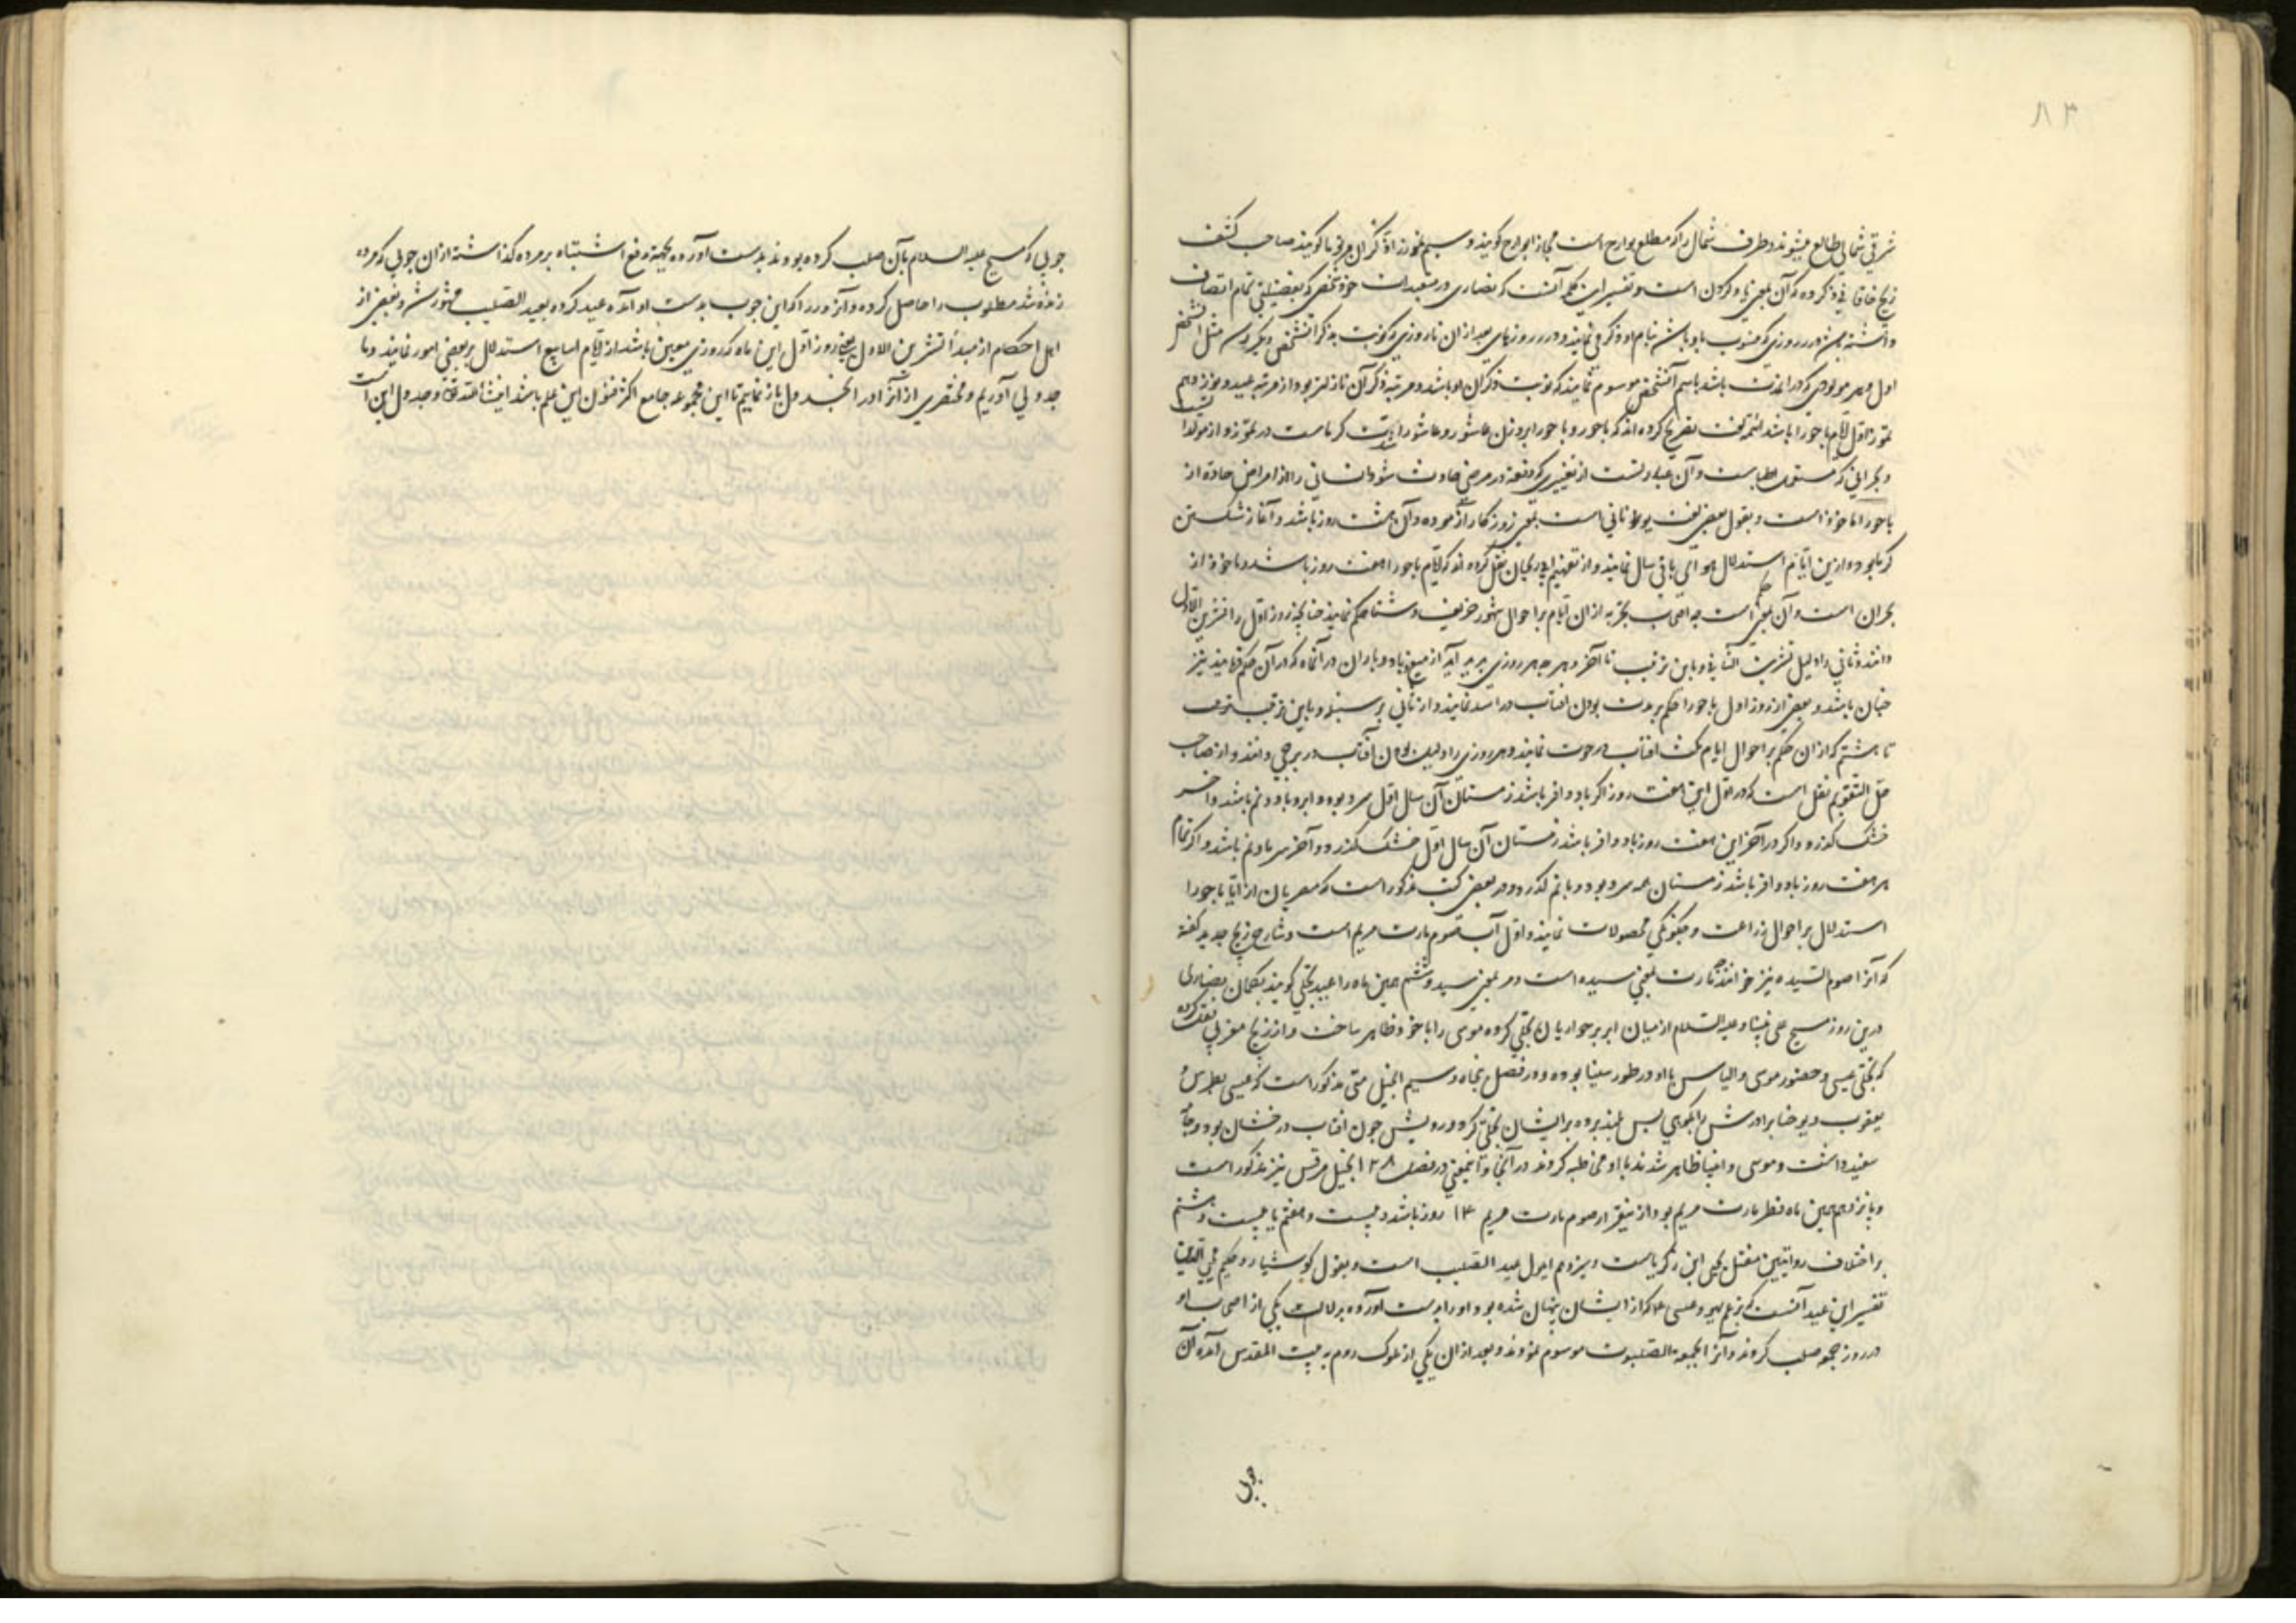 ۸۳
شرقی شمالی طالع میشوند و طرف شمال را که مطلع بوارح است مجازا بوارح کویند و سیم تموز را ذکران مرتوما کویند صاحب کشف
زیج خاقانی ذکر کرده که آن بمعنی یاد کردن است و تفسیر این ذکر آنست که نصاری در متعبدات خود شخصی که بفضیلتی تمام اتصاف
داشته باشد در روزی که منسوب باو باشد بنام او ذکر می نمایند و در روزهای بعد از ان تا روزی که نوبت بذکر آن شخص دیگر رسد مثل آنشخص
اول و هر مولودی که در آنمدت باشد باسم آنشخص موسوم نمایند که نوبت ذکران او باشد و مرتبه ذکر آن نازلتر بود از مرتبه عید و نوزدهم
تموز اول ایام باحورا باشد ائمه لغت تصریح کرده اند که باحور و باحورا بر وزن عاشور و عاشورا شدت کرماست در تموز و از مولدا
و بحرانی که مستعمل اطباست و آن عبارتست از تغییری که دفعة در مرض حادث شود انسانی را از امراض حاده از
باحورا ماخوذ است و بقول بعضی لغت یونانی است بمعنی روزکار آزموده و آن هشت روز باشد و آغاز شکستن
کرما بود و ازین ایام استدلال هوای باقی سال نمایند و از تفهیم ابوریحان نقل کرده اند که ایام باحورا هفت روز باشد و ماخوذ از
بحران است و آن بمعنی حکم است چه اصحاب تجربه از ان ایام بر احوال شهور خریف و شتا حکم نمایند چنانچه روز اول را تشرین الاول
دانند و ثانی را دلیل تشرین الثانی و باین ترتیب تا آخر و هر چه هر روزی پدید آید از میغ و باد و باران در آنماه که در آن حکم نمایند نیز
چنان باشد و بعضی از روز اول باحورا حکم بر مدت بودن افتاب در اسد نمایند و از ثانی بر سنبله و باین ترتیب
تا هشتم که از ان حکم بر احوال ایام مکث افتاب در حوت نمایند و هر روزی را دلیل بودن آفتاب در برجی دانند و از صاحب
حل التقویم نقل است که در اول این هفت روز اکر باد وافر باشد زمستان آن سال اول سرد بود و ابر و باد و نم باشد و آخر
خشک کذرد و اکر در آخر این هفت روز باد وافر باشد زمستان آن سال اول خشک کذرد و آخر سرما و نم باشد و اکر تمام
هر هفت روز باد وافر باشد زمستان همه سرد بود و با نم کذرد و در بعضی کتب مذکور است که مصریان از ایام باحورا
استدلال بر احوال زراعت و چکونکی محصولات نمایند و اول آب صوم مارت مریم است و شارح زیج جدید کفته
که آنرا صوم السیده نیز خوانند مارت بمعنی سیده است و در بمعنی سید و ششم همین ماه را عید تجلی کویند بکمان نصاری
درین روز مسیح علی نبینا و علیه السلام از میان ابر بر حواریان تجلی کرده موسی را با خود ظاهر ساخت و از زیج مغربی نقل کرده
که تجلی عیسی و حضور موسی و الیاس با او در طور سینا بوده و در فصل پنجاه و سیم انجیل متی مذکور است که عیسی بطرس
یعقوب و یوحنا برادرش را بکوهی بس بلند برده بر ایشان تجلی کرد و رویش چون افتاب درخشان بود و جامه
سفید داشت و موسی و ایلیا ظاهر شدند با او مخاطبه کردند در آنجا و اینمعنی در فصل ۲۸ انجیل مرقس نیز مذکور است
و پانزدهم همین ماه فطر مارت مریم بود ازینقرار صوم مارت مریم ۱۴ روز باشد و بیست و هفتم یا بیست و هشتم
بر اختلاف روایتین مقتل یحیی ابن زکریاست و سیزدهم ایلول عید الصلیب است و بقول کوشیار و حکیم محیی الدین
تفسیر این عید آنست که بزعم یهود عیسی ع که از ایشان پنهان شده بود او را بدست آورده بدلالت یکی از اصحاب او
در روز جمعه صلب کردند و آنرا الجمعة الصلبوت موسوم نمودند و بعد از ان یکی از ملوک روم به بیت المقدس آمده آن
چوبی
چوبی که مسیح علیه السلام بآن صلب کرده بودند بدست آورده بجهة رفع اشتباه بر مرده کذاشته از ان چوبی که مرده
زنده شد مطلوب را حاصل کرده و آنروز را که این چوب بدست او آمده عید کرده بعید الصلیب مشهور شد و بعضی از
اهل احکام از مبدأ تشرین الاول یعنی روز اول این ماه که روزی معین باشد از ایام اسابیع استدلال بر بعضی امور نمایند و ما
جدولی آوریم و مختصری از آنرا در آنجدول باز نماییم تا این مجموعه جامع اکثر فنون این علم باشد انشاءالله تعالی و جدول این است